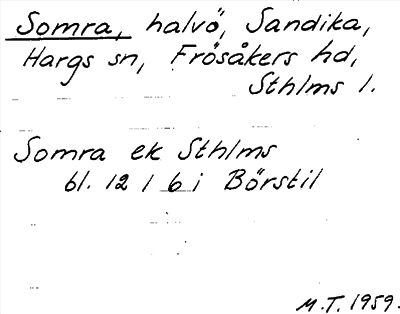 Somra, halvö, Sandika,
Hargs sn, Frösåkers hd,
Sthlms l.
Somra ek Sthlms
bl. 12 1 6 i Börstil
M.T. 1959.